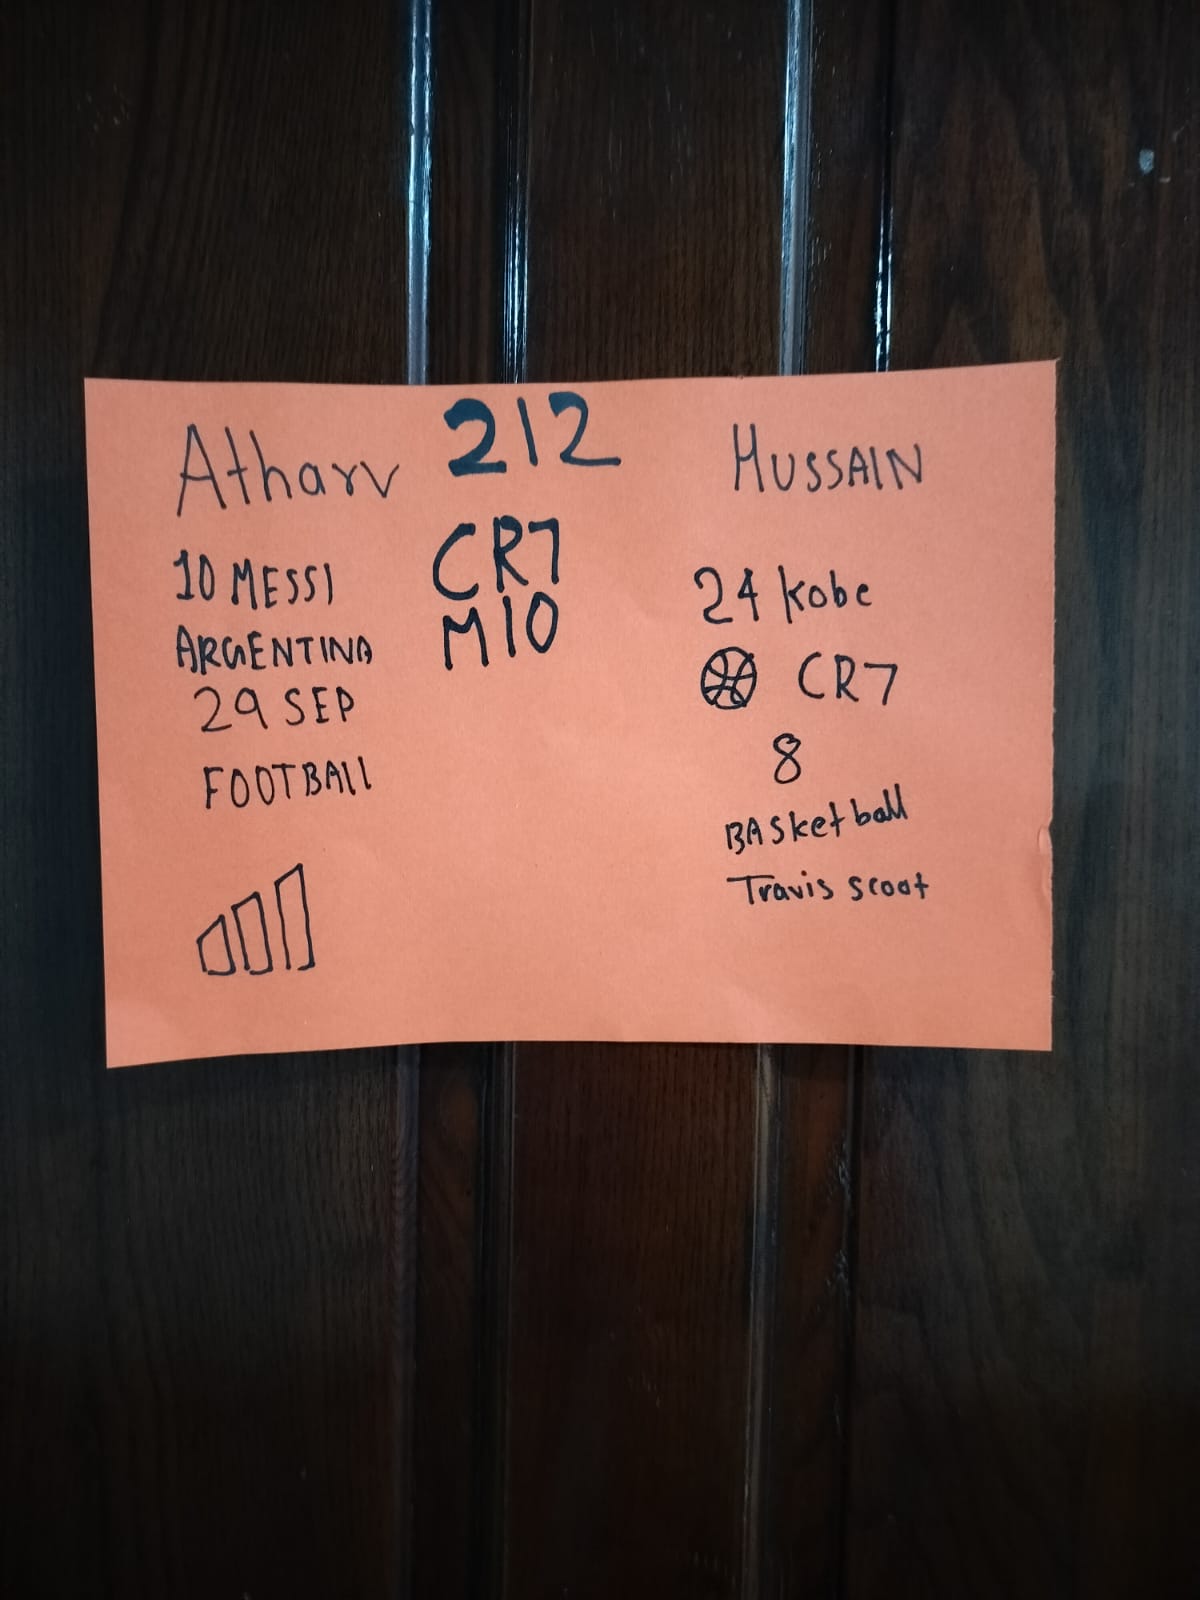 Atharv
10 MESSI
ARGENTINA
29 SEP
FOOTBALL
212
CR7
M10
HUSSAIN
24 kobe
CR7
8
BASketball
Travis scoot